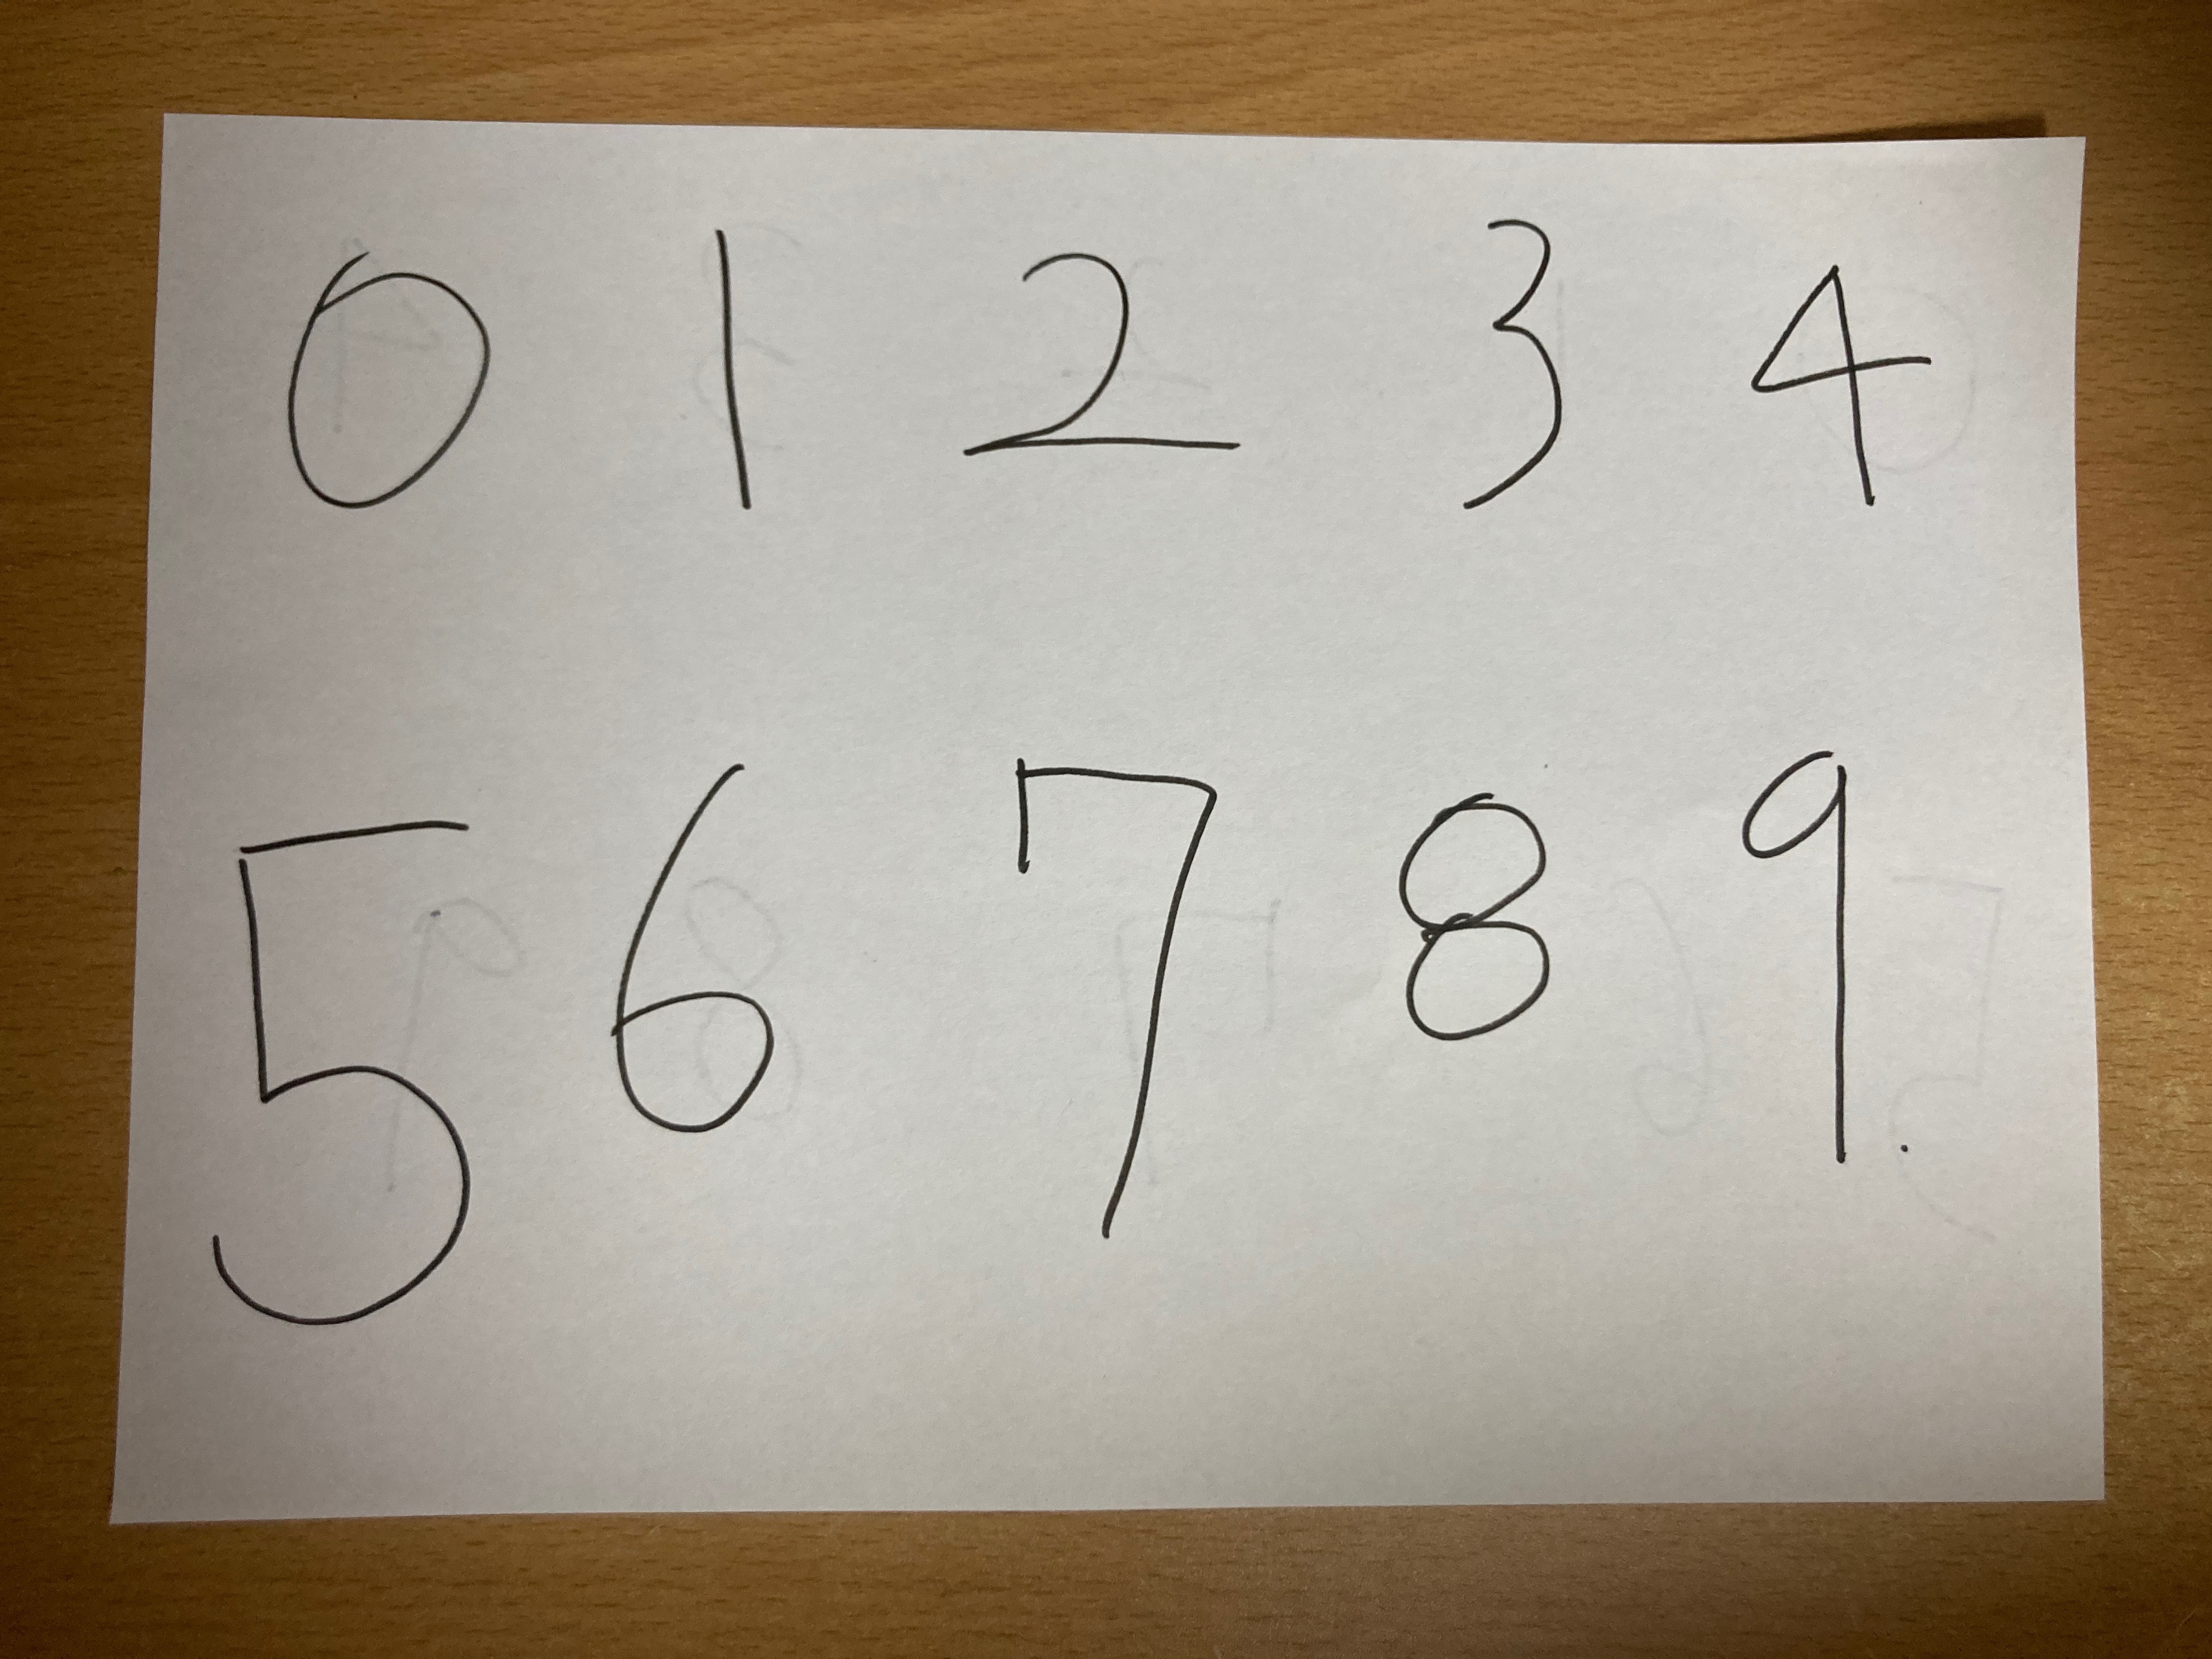 0 1 2 3 4
5 6 7 8 9.